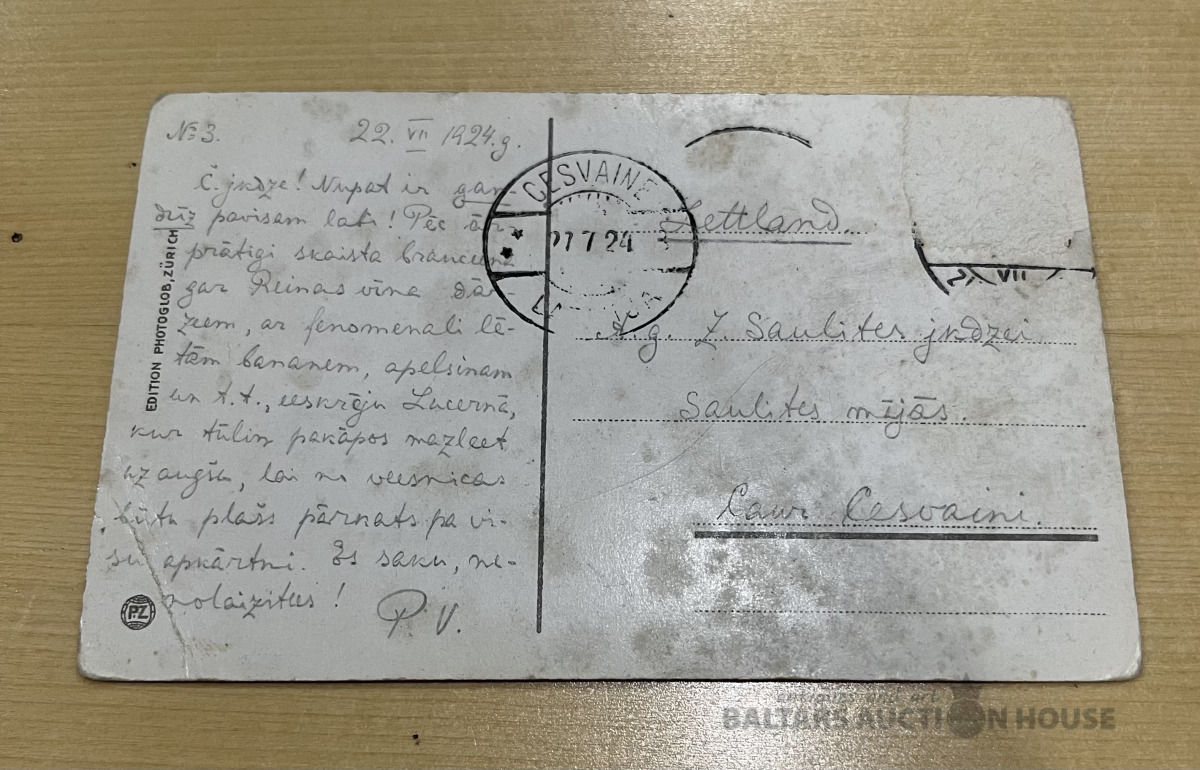 № 3. 22. VII 1924.g.
Č. jkdze! Nupat ir gan-
drīz pavisam labi! Pēc ār-
prātīgi skaista braucena
gar Reinas vīna dār-
zeem, ar fenomenali lē-
tām bananem, apelsinam
un t.t., eeskrēju Lucernā,
kur tūliņ pakāpos mazleet
uz augšu, lai no veesnicas
būtu plašs pārskats pa vi-
su apkārtni. Es saku, ne-
nolaizities!
P. V.
EDITION PHOTOGLOB, ZÜRICH
PZ
CESVAINE
27 7 24
VII
Lettland.
A. g. Z. Saulites jkdzei
Saulites mājās.
Caur Cesvaini.
BALTARS AUCTION HOUSE